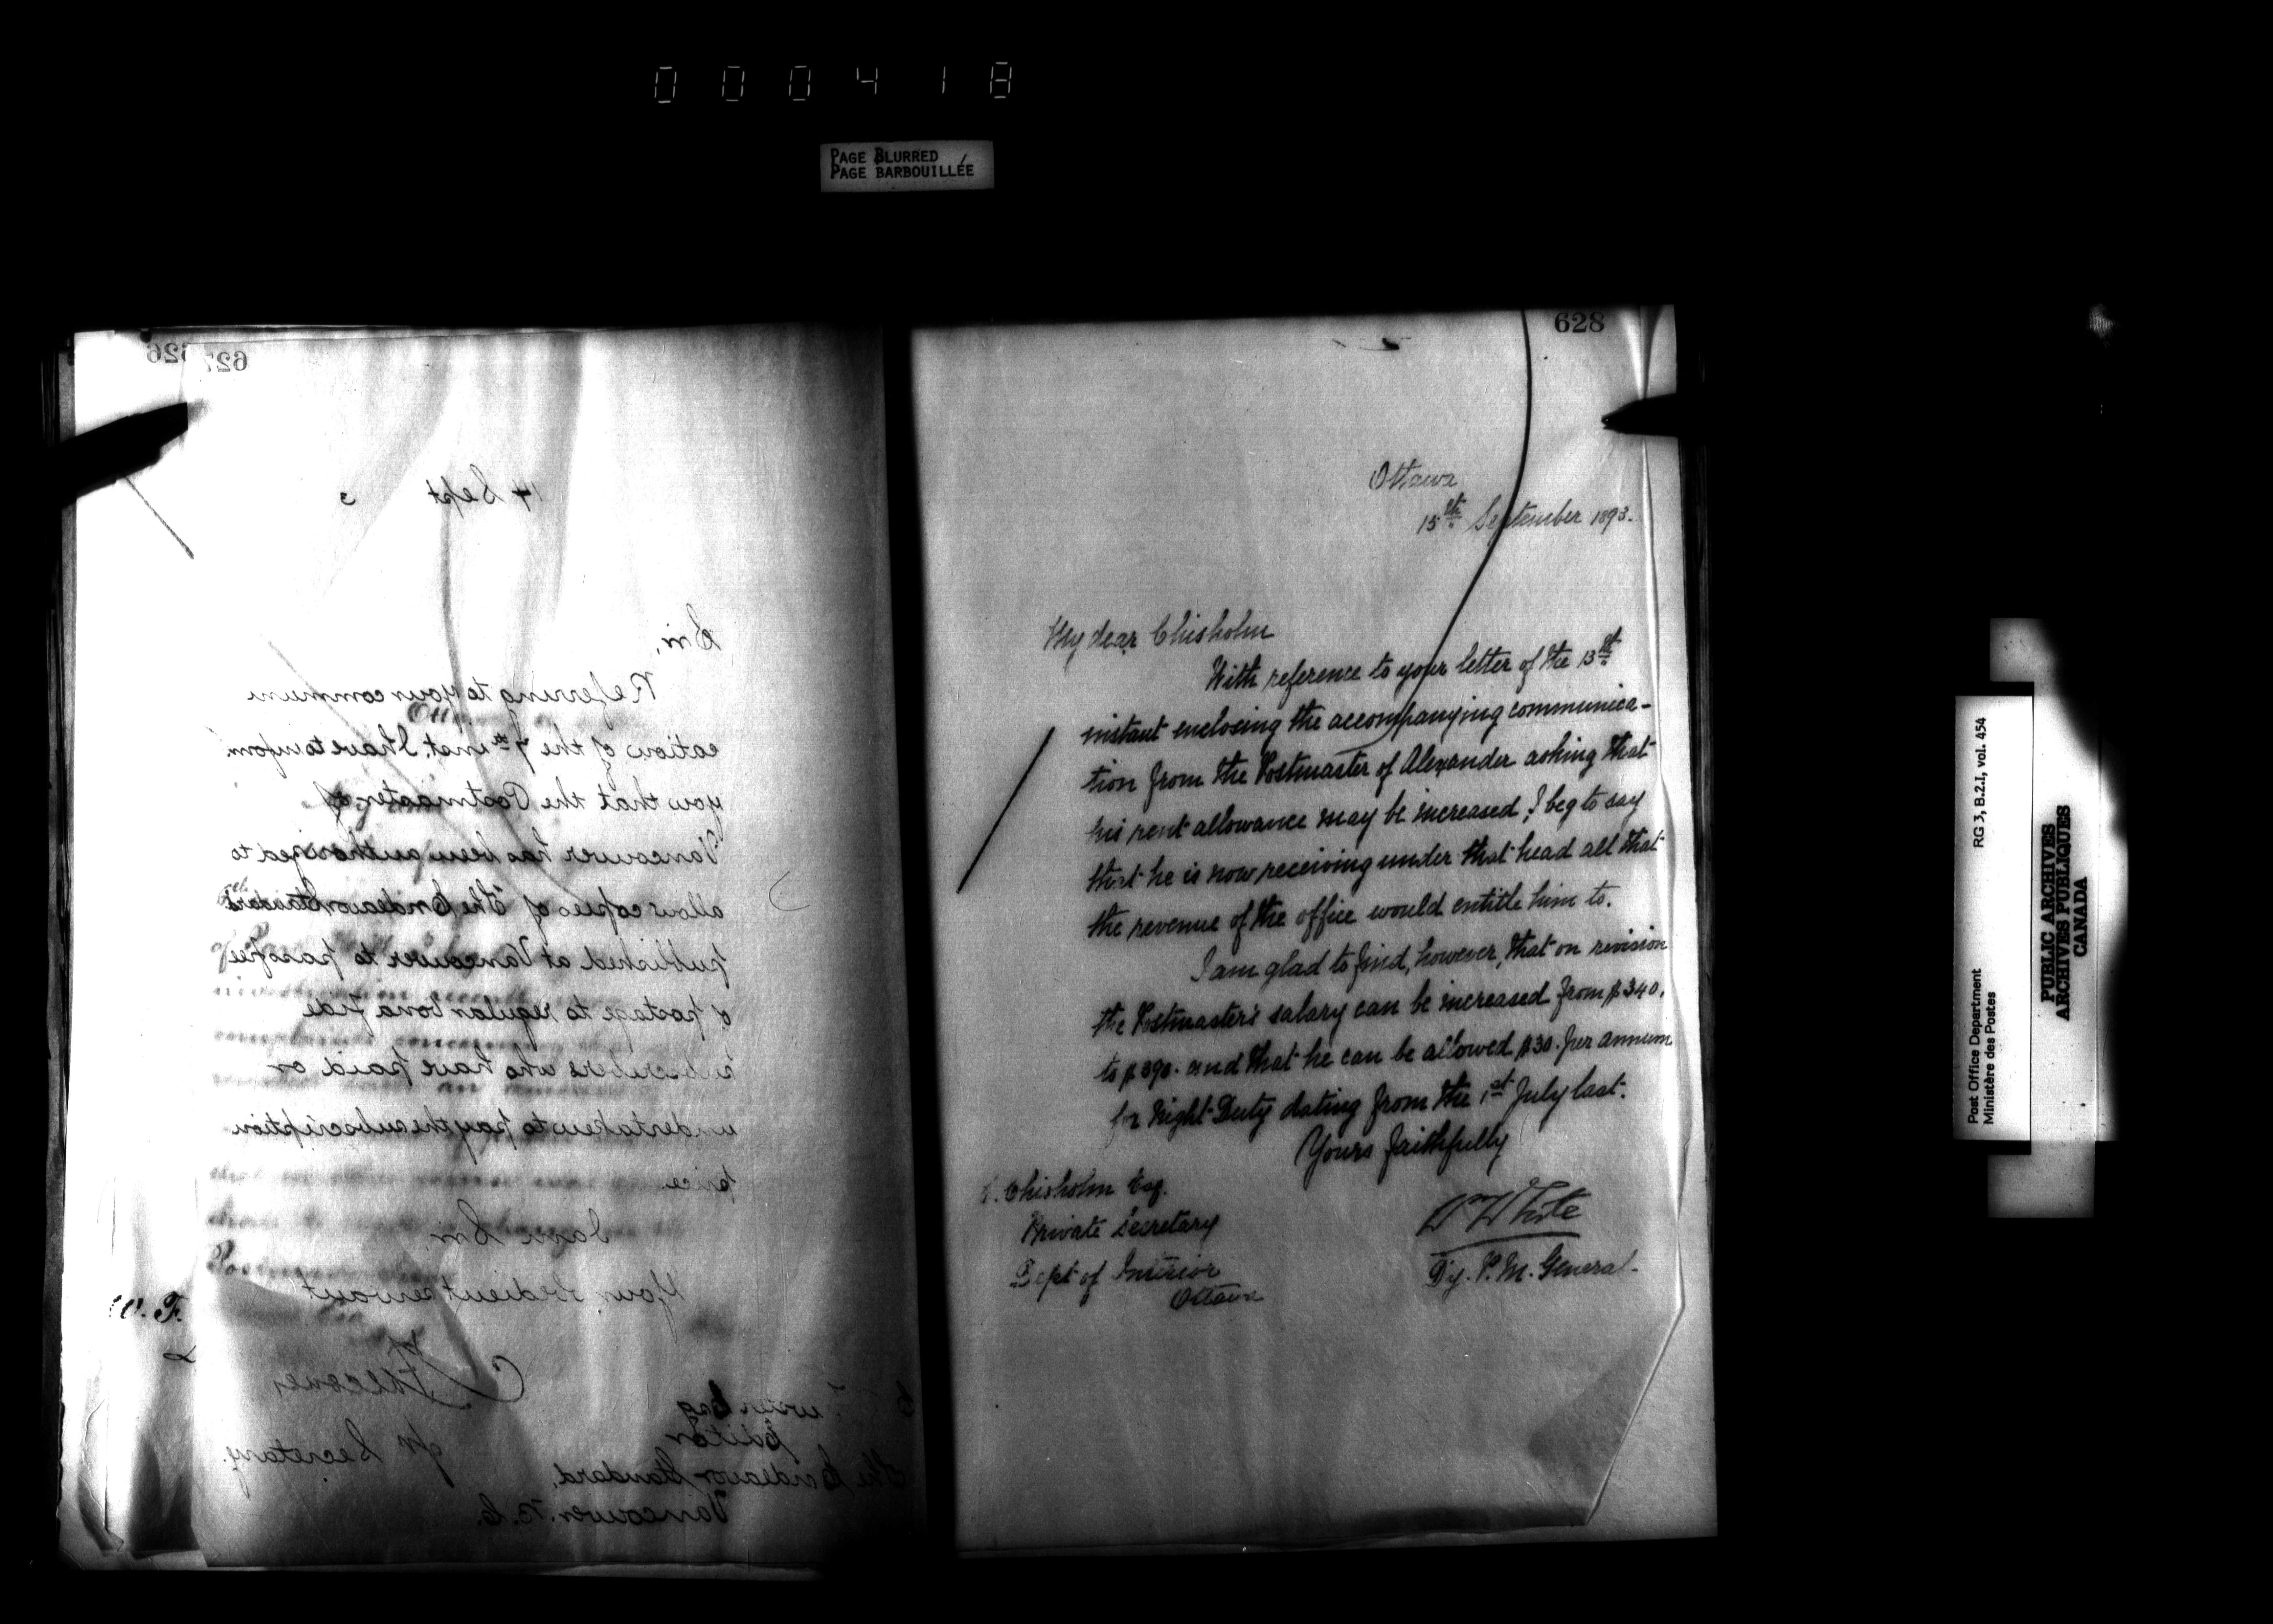 000418
PAGE BLURRED
PAGE BARBOUILLÉE
626
627
14 Sept 3
Sir,
Referring to your communi
cation of the 7th inst. I have to inform
you that the Postmaster of
Vancouver has been authorized to
allow copies of The Endeavor Standard
published at Vancouver to pass free
of postage to regular bona fide
subscribers who have paid or
undertaken to pay the subscription
price.
I am Sir,
Your obedient servant
for Secretary.
Esq
Editor
The Endeavor Standard,
Vancouver. B.C.
628
Ottawa
15th September 1893.
My dear Chisholm
With reference to your letter of the 13th
instant enclosing the accompanying communica-
tion from the Postmaster of Alexander asking that
his rent allowance may be increased, I beg to say
that he is now receiving under that head all that
the revenue of the office would entitle him to.
I am glad to find, however, that on revision
the Postmaster's salary can be increased from $340.
to $390. and that he can be allowed $30. per annum
for Night Duty dating from the 1st July last.
Yours faithfully
Chisholm Esq.
Private Secretary
Dept of Interior
Ottawa
Wm White
Dy. P. M. General.
Post Office Department
Ministère des Postes
RG 3, B.2.I, vol. 454
PUBLIC ARCHIVES
ARCHIVES PUBLIQUES
CANADA